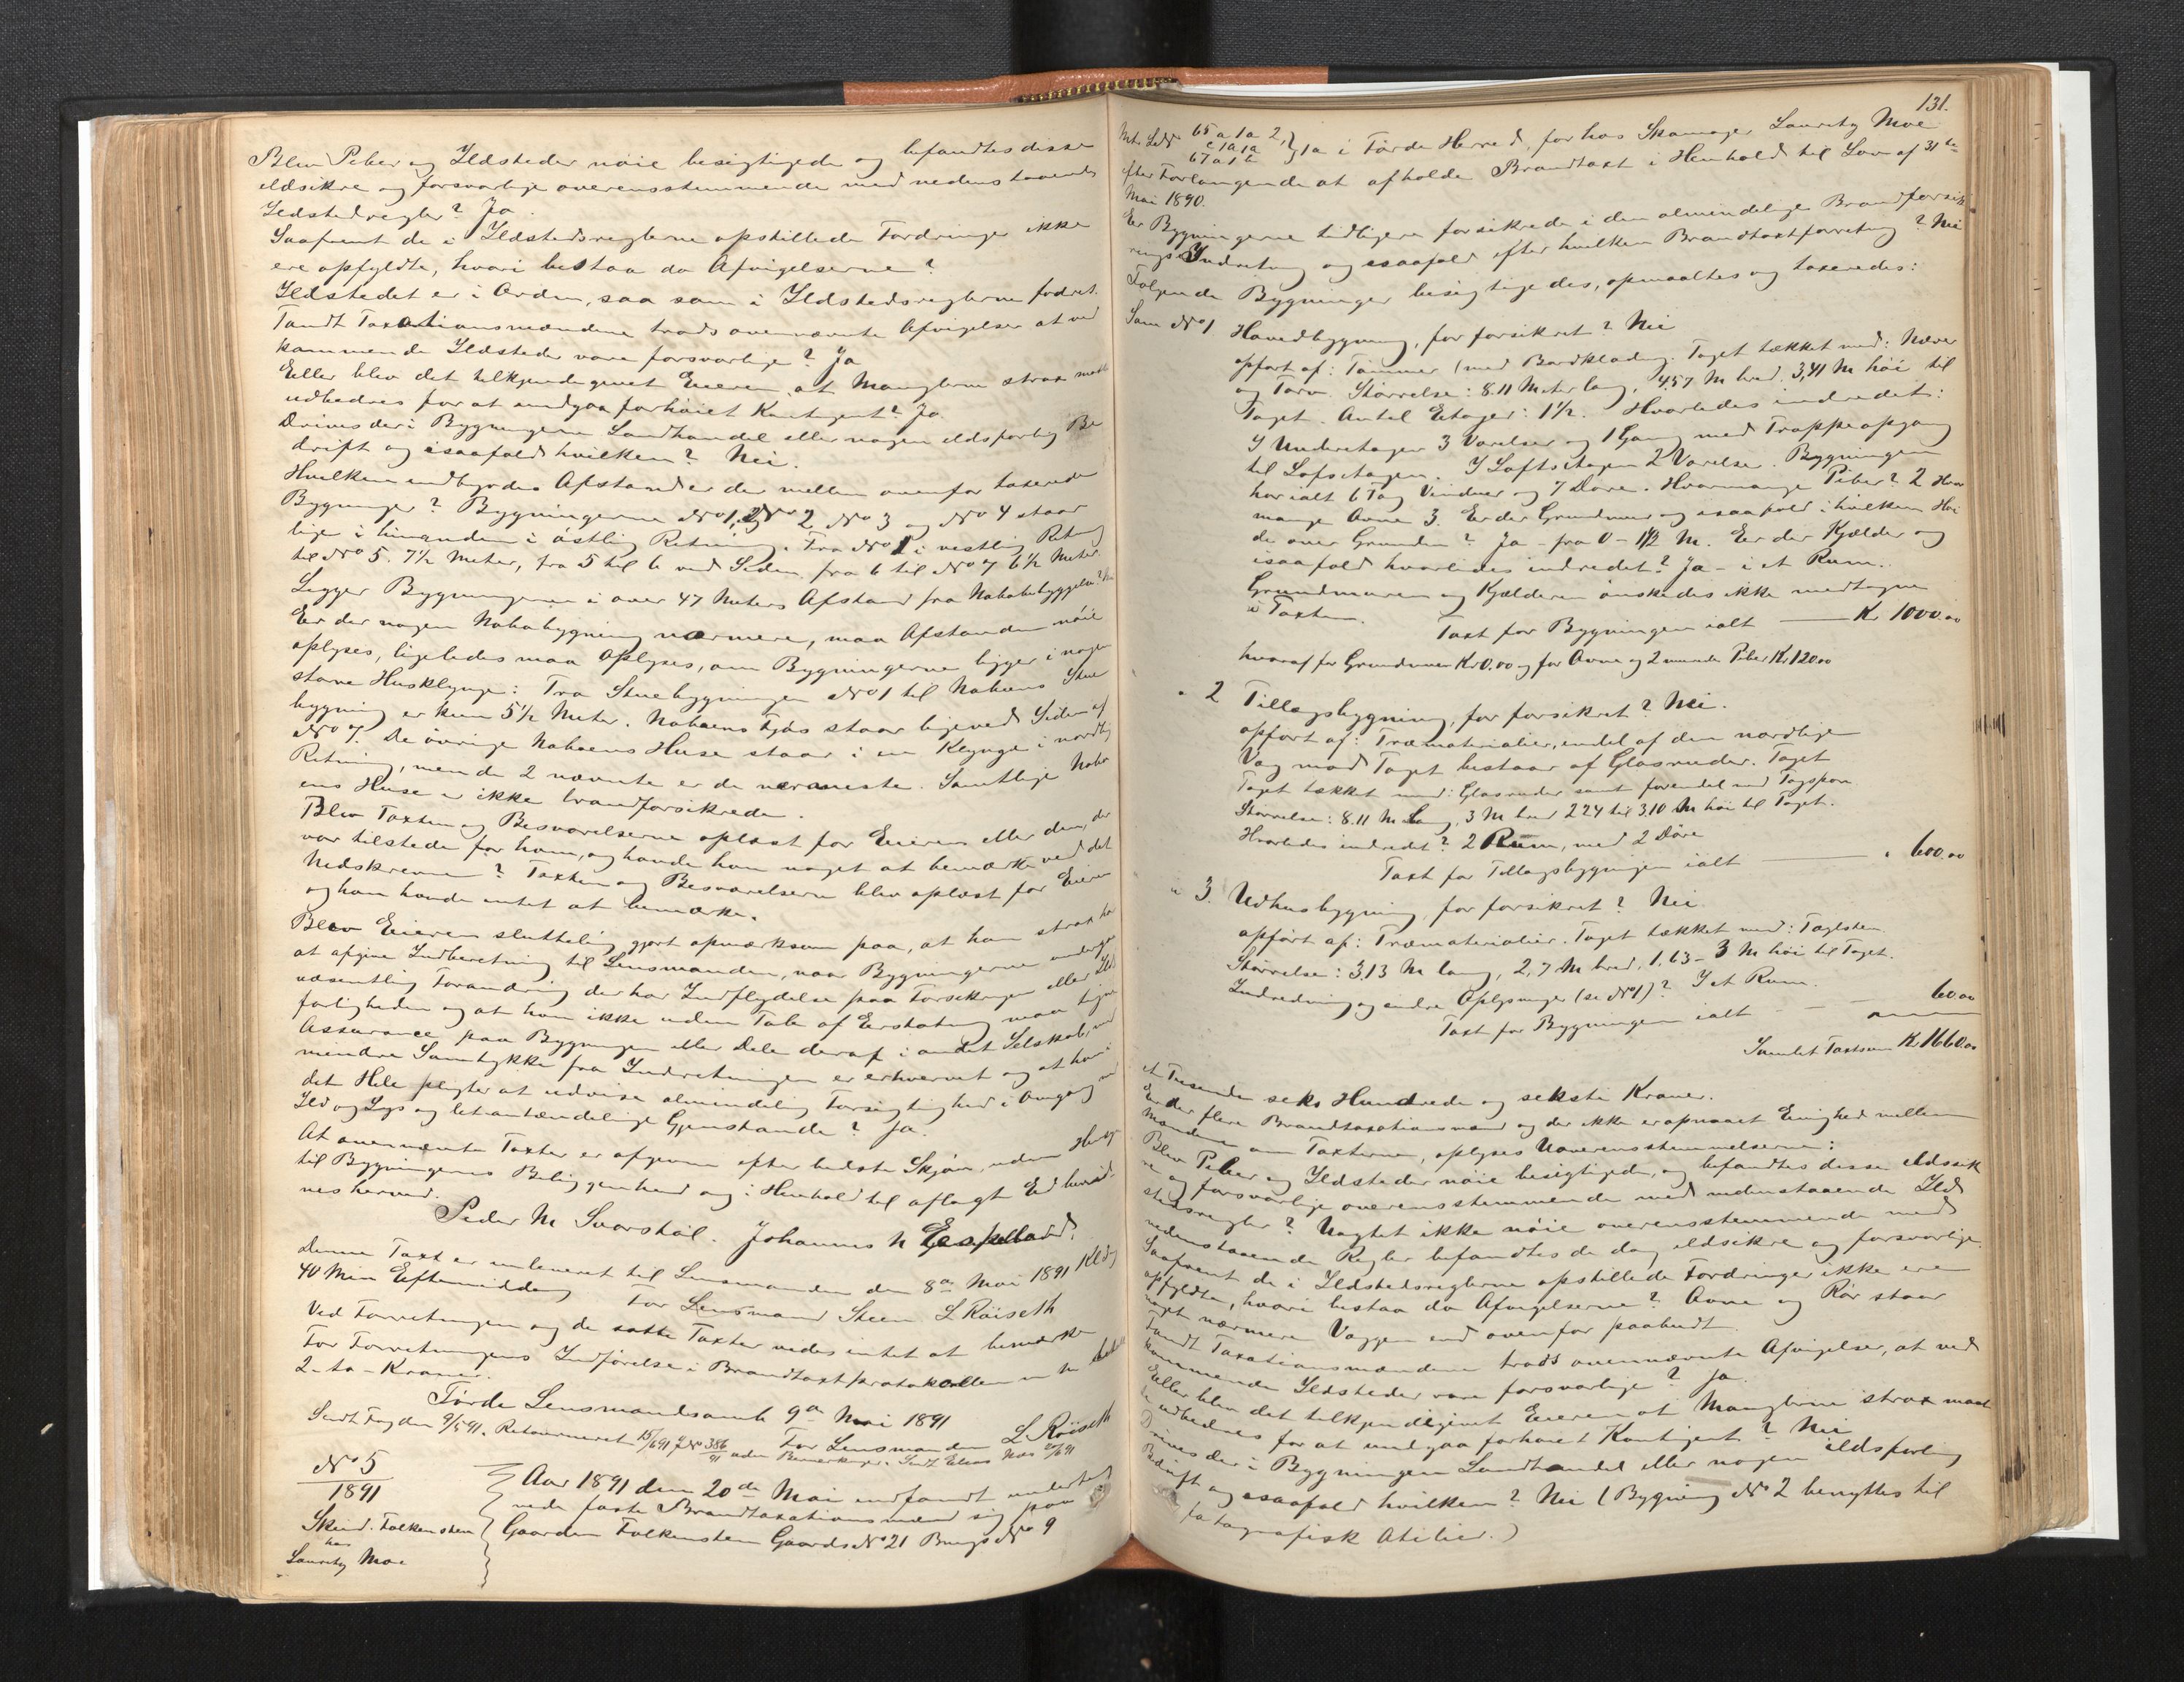 Blev Piber og Ildsteder nøie besigtigede og befandtes disse
ildsikre og forsvarlige overensstemmende med nedenstaaende
Ildstedregler? Ja.
Saafremt de i Ildstedsreglerne opstillede Fordringer ikke
ere opfyldte, hvori bestaa da Afvigelserne?
Ildstedet er i Orden, saa som i Ildstedsreglerne fodret.
Fandt Taxationsmændene trods ovennævnte Afvigelser at ved
kommende Ildsteder vare forsvarlige? Ja
Eller blev det tilkjendegivet Eieren at Manglerne strax maatte
udbedres for at undgaa forhøiet Kontigent? Ja
Drives der i Bygningerne Landhandel eller nogen ildsfarlig Be
drift og isaafald hvilken? Nei.
Hvilken indbyrdes Afstand er der mellem ovenfor taxerede
Bygninger? Bygningerne No 1, No 2 No 3 og No 4 staar
lige i hinanden i østlig Retning. Fra No 1 i vestlig Retning
til No 5. 7½ Meter, fra 5 til 6 ved Siden fra 6 til No 7 6½ Meter.
Ligger Bygningerne i over 47 Meters Afstand fra Nabobebyggelse? Nei
Er der nogen Nabobygning nærmere, maa Afstanden nøie
oplyses, ligeledes maa oplyses, om Bygningerne ligger i nogen
større Husklynge: Fra Stuebygningen No 1 til Naboens Stue
bygning er kun 5½ Meter. Naboens Fjøs staar lige ved Siden af
No 7. De øvrige Naboens Huse staar i en Klynge i nordlig
Retning, men de 2 nævnte er de nærmeste. Samtlige Nabo
ens Huse er ikke brandforsikrede.
Blev Taxten og Besvarelserne oplæst for Eieren eller den, der
var tilstede for ham, og havde han noget at bemærke ved det
Nedskrevne? Taxten og Besvarelserne blev oplæst for Eieren
og han havde intet at bemærke.
Blev Eieren sluttelig gjort opmærksom paa, at han strax har
at afgive Indberetning til Lensmanden, naar Bygningerne undergaar
væsentlig Forandring der har Indflydelse paa Forsikringen eller Ild
farligheden og at han ikke uden Tab af Erstatning maa tegne
Assurance paa Bygningen eller Dele deraf i andet Selskab, med
mindre Samtykke fra Indretningen er erhvervet og at han i
det Hele pligter at udvise almindelig Forsigtighed i Omgang med
Ild og Lys og letantændelige Gjenstande? Ja.
At ovennævnte Taxter er afgivne efter bedste Skjøn, uden Hensyn
til Bygningens Beliggenhed og i Henhold til aflagt Ed bevid
nes herved.
Peder M Svorstøl. Johannes N Espeland.
Denne Taxt er indleveret til Lensmanden den 8de Mai 1891 Kl
40 Min Eftermiddag For Lensmand Steen L Røiseth
Ved Forretningen og de satte Taxter vedes intet at bemærke
For Forretningens Indførelse i Brandtaxtprotokollen er
2 - to - Kroner.
Førde Lensmandsamt 9de Mai 1891
For Lensmanden L Røiseth
Sendt Fogden 9/5 91. Retourneret 15/6 91 J No 386/91 uden Bemærkninger. Sendt
No 5
1891
Skind. Falkensten
hos
Lauritz Moe
Aar 1891 den 20de Mai indfandt underteg
nede faste Brandtaxationsmænd sig paa
Gaarden Falkensten Gaards No 21 Brugs No 9
131.
Mt. Lbr 65 a 1a 2,
c 1a 1a
67 a 1 b } 1a i Førde Herred, for hos Skomager Lauritz Moe
efter Forlangende at afholde Brandtaxt i Henhold til Lov af 31te
Mai 1890.
Er Bygningerne tidligere forsikrede i den almindelige Brandforsik
rings Indretning og isaafald efter hvilken Brandtaxtforretning? Nei
Følgende Bygninger besigtigedes, opmaaltes og taxeredes:
Som No 1 Hovedbygning, før forsikret? Nei
opført af: Tømmer (med Bordklædning. Taget tækket med: Næver
og Torv. Størrelse: 8.11 Meter lang, 4,57 M bred. 3,41 M høi til
Taget. Antal Etager: 1½. Hvorledes indredet:
I Underetagen 3 Værelser og 1 Gang med Trappeopgang
til Loftsetagen. I Loftsetagen 2 Værelser. Bygningen
har ialt 6 Fag Vinduer og 7 Døre. Hvormange Piber? 2 Hvor
mange Ovne 3. Er der Grundmur og isaafald i hvilken Høi
de over Grunden? Ja - fra 0 - 1½ M. Er der Kjælder og
isaafald hvorledes indredet? Ja - i et Rum.
Grundmuren og Kjælderen ønskedes ikke medtagne
i Taxten.
Taxt for Bygningen ialt — Kr 1000.00
hvoraf for Grundmuren Kr 0.00 og for Ovne og 2 murede Piber Kr 120.00
" 2 Tillægsbygning, før forsikret? Nei.
opført af: Træmaterialier, endel af den nordlige
Væg mod Taget bestaar af Glasruder. Taget
Taget tækket med: Glasruder samt forendel med Tagspon
Størrelse: 8.11 M Lang, 3 M bred 2.24 til 3.10 M høi til Taget.
Hvorledes indredet? 2 Rum, med 2 Døre
Taxt for Tillægsbygningen ialt — " 600.00
" 3. Udhusbygning, før forsikret? Nei
opført af: Træmaterialier. Taget tækket med: Taglsten.
Størrelse: 3,13 M lang, 2,7 M bred, 1.63 - 3 M høi til Taget.
Indredning og andre Oplysninger (se No 1)? I et Rum.
Taxt for Bygningen ialt — 60.00
Samlet Taxtsum Kr 1660.00
et Tusende seks Hundrede og seksti Kroner.
Er der flere Brandtaxationsmænd og der ikke er opnaaet Enighed mellem
Mændene om Taxterne, oplyses Uoverensstemmelserne:
Blev Piber og Ildsteder nøie besigtigede, og befandtes disse ildssik
re og forsvarlige overensstemmende med nedenstaaende Ild
stedsregler? Uagtet ikke nøie overensstemmende med
nedenstaaende Regler befandtes de dog ildsikre og forsvarlige.
Saafremt de i Ildstedsreglerne opstillede Fordringer ikke ere
opfyldte, hvori bestaa da Afvigelserne? Ovne og Rør staar
noget nærmere Væggen end ovenfor paabudt.
Fandt Taxationsmændene trods ovennævnte Afvigelser, at ved
kommende Ildsteder vare forsvarlige? Ja.
Eller blev det tilkjendegivet Eieren at Manglerne strax maat
te udbedres for at undgaa forhøiet Kontigent? Nei
Drives der i Bygningen Landhandel eller nogen ildsfarlig
Bedrift og isaafald hvilken? Nei (Bygning No 2 benyttes til
fotografisk Atelier.)